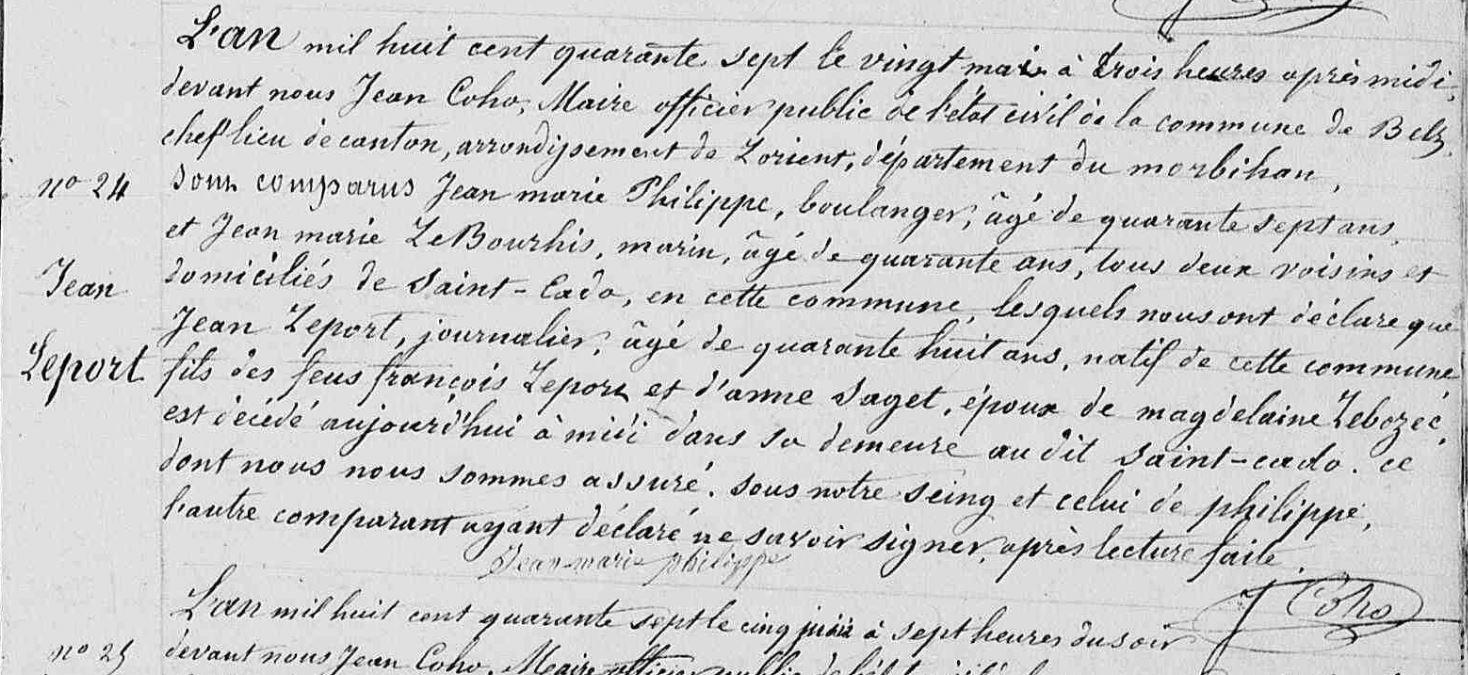 L'an mil huit cent quarante sept le vingt mai à trois heures après midi,
devant nous Jean Coho, Maire officier public de l'état civil de la commune de Belz,
chef lieu de canton, arrondissement de Lorient, département du morbihan,
n° 24
sont comparus Jean marie Philippe, boulanger, âgé de quarante sept ans,
et Jean marie Le Bourhis, marin, âgé de quarante ans, tous deux voisins et
Jean
domiciliés de Saint-Cado, en cette commune, lesquels nous ont déclaré que
Jean Leport, journalier, âgé de quarante huit ans, natif de cette commune
Leport
fils des feus françois Leport et d'anne Saget, époux de magdelaine Lebozec,
est décédé aujourd'hui à midi dans sa demeure au dit Saint-cado. ce
dont nous nous sommes assuré. sous notre seing et celui de philippe,
l'autre comparant ayant déclaré ne savoir signer, après lecture faite.
Jean marie philippe
J Coho
L'an mil huit cent quarante sept le cinq juin à sept heures du soir
n° 25
devant nous Jean Coho, Maire officier public de l'état civil de la